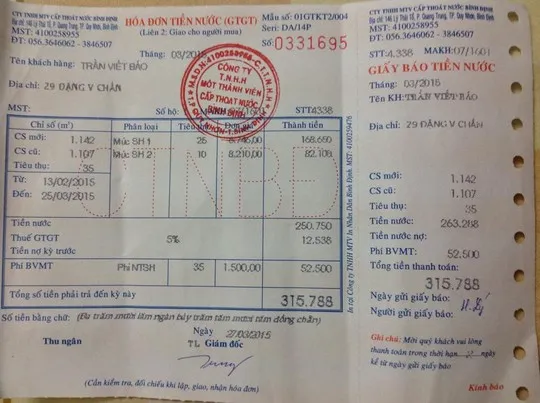 CTY TNHH MTV CẤP THOÁT NƯỚC BÌNH ĐỊNH
Địa chỉ: 146 Lý Thái Tổ, P. Quang Trung, TP. Quy Nhơn, Bình Định
MST: 4100258955
ĐT: 056.3646062 - 3846507
HÓA ĐƠN TIỀN NƯỚC (GTGT)
(Liên 2: Giao cho người mua)
Mẫu số: 01GTKT2/004
Seri: DA/14P
Số: 0331695
Tháng: 03/2015
Tên khách hàng: TRẦN VIẾT BẢO
Địa chỉ: 29 ĐẶNG V CHẤN
MST:
Số hộ:
STT4338
CÔNG TY
T.N.H.H
MỘT THÀNH VIÊN
CẤP THOÁT NƯỚC
BÌNH ĐỊNH
Chỉ số (m³) Phân loại Thành tiền
CS mới: 1.142 Mức SH 1 25 168.650
CS cũ: 1.107 Mức SH 2 10 8.210,00 82.100
Tiêu thụ: 35
Từ: 13/02/2015
Đến: 25/03/2015
CTNBĐ
Tiền nước 250.750
Thuế GTGT 5% 12.538
Tiền nợ kỳ trước
Phí BVMT Phí NTSH 35 1.500,00 52.500
Tổng số tiền phải trả đến kỳ này 315.788
Số tiền bằng chữ: (Ba trăm mười lăm ngàn bảy trăm tám mươi tám đồng chẵn)
Ngày 27/03/2015
Thu ngân TL Giám đốc
(Cần kiểm tra, đối chiếu khi lập, giao, nhận hóa đơn)
In tại Công ty TNHH MTV In Nhân Dân Bình Định. MST: 4100259476
CTY TNHH MTV CẤP THOÁT NƯỚC BÌNH ĐỊNH
Địa chỉ: 146 Lý Thái Tổ, P. Quang Trung, TP. Quy Nhơn, Bình Định
ĐT: 056.3646062 - 3846507
STT:4.338 MAKH:07/1601
GIẤY BÁO TIỀN NƯỚC
Tháng: 03/2015
Tên KH:TRẦN VIẾT BẢO
Địa chỉ: 29 ĐẶNG V CHẤN
CS mới: 1.142
CS cũ: 1.107
Tiêu thụ: 35
Tiền nước: 263.288
Tiền nước nợ:
Phí BVMT: 52.500
Tổng tiền thanh toán:
315.788
Ngày gửi giấy báo:
Người gửi giấy báo:
Ghi chú: Mời quý khách vui lòng
thanh toán trong thời hạn ngày
kể từ ngày gửi giấy báo
Kính báo